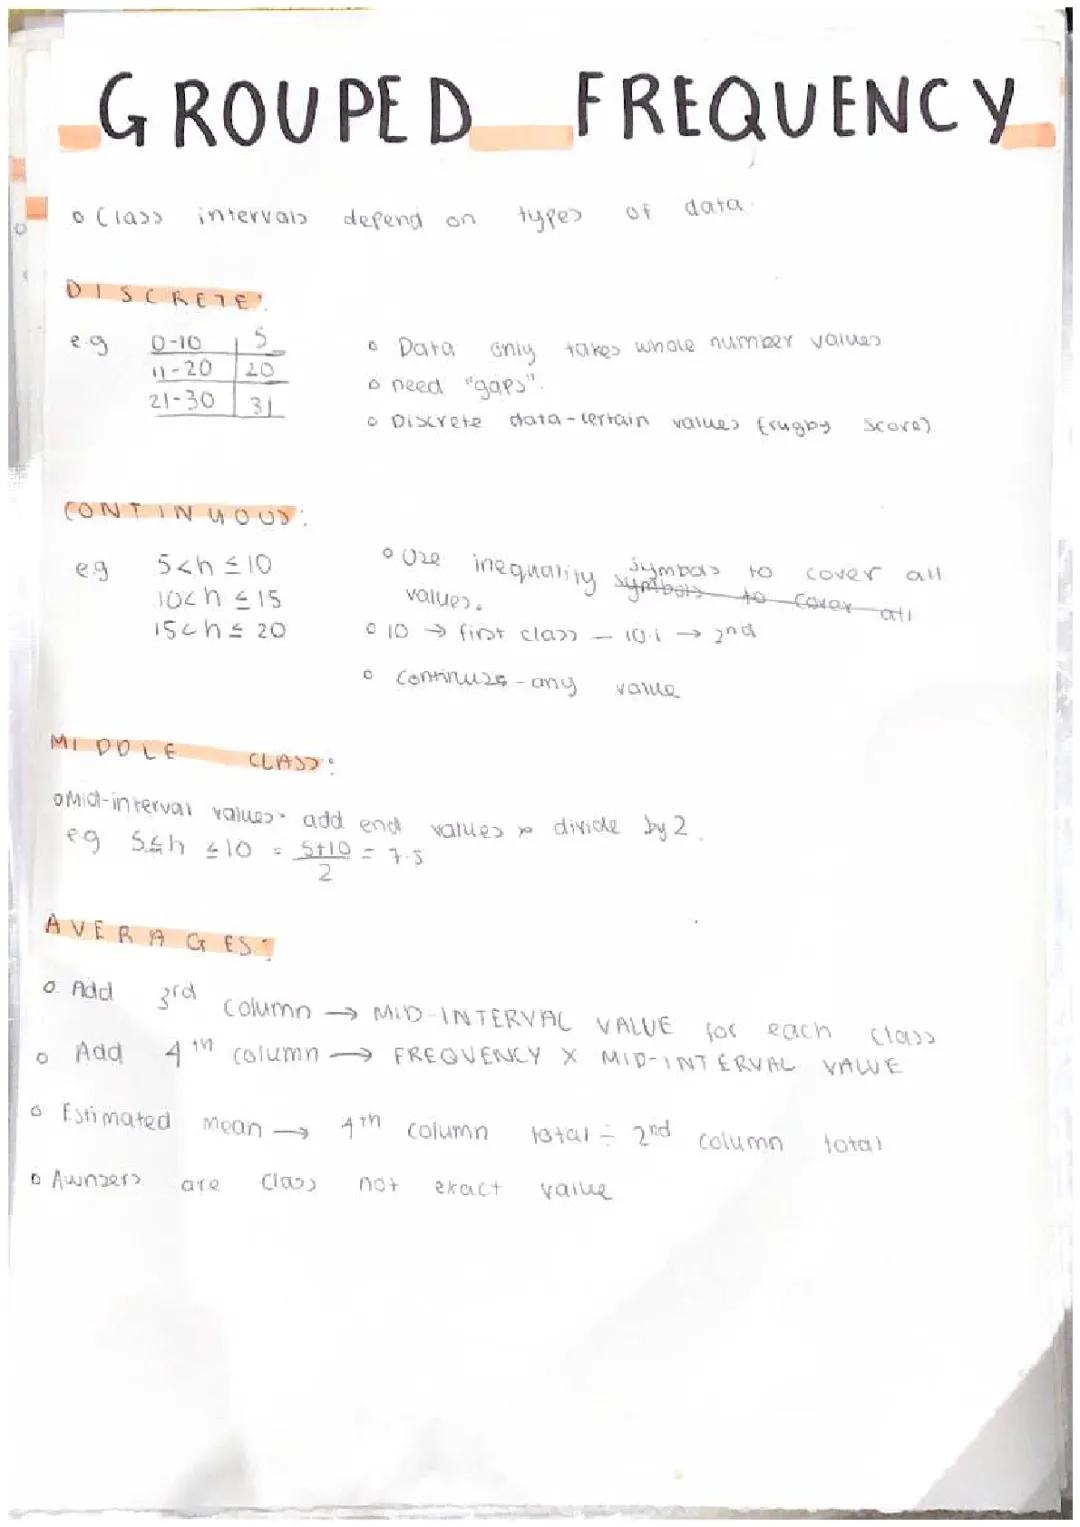 GROUPED FREQUENCY
o Class intervals depend on types of data.
DISCRETE:
e.g 0-10 5
11-20 20
21-30 31
o Data only takes whole number values
o need "gaps".
o Discrete data-certain values (rugby score)
CONTINUOUS:
e.g 5<h≤10
10<h≤15
15<h≤20
o Use inequality symbols to cover all
symbols to cover all
values.
o 10 → first class - 10.1 → 2nd
o continuze - any value
MIDDLE CLASS:
o Mid-interval values. add end values & divide by 2.
eg 5≤h ≤10 = 5+10 = 7.5
2
AVERAGES:
o Add 3rd column → MID-INTERVAL VALUE for each class
o Add 4th column → FREQUENCY X MID-INTERVAL VALUE
o Estimated mean → 4th column total ÷ 2nd column total
o Awnsers are class not exact value